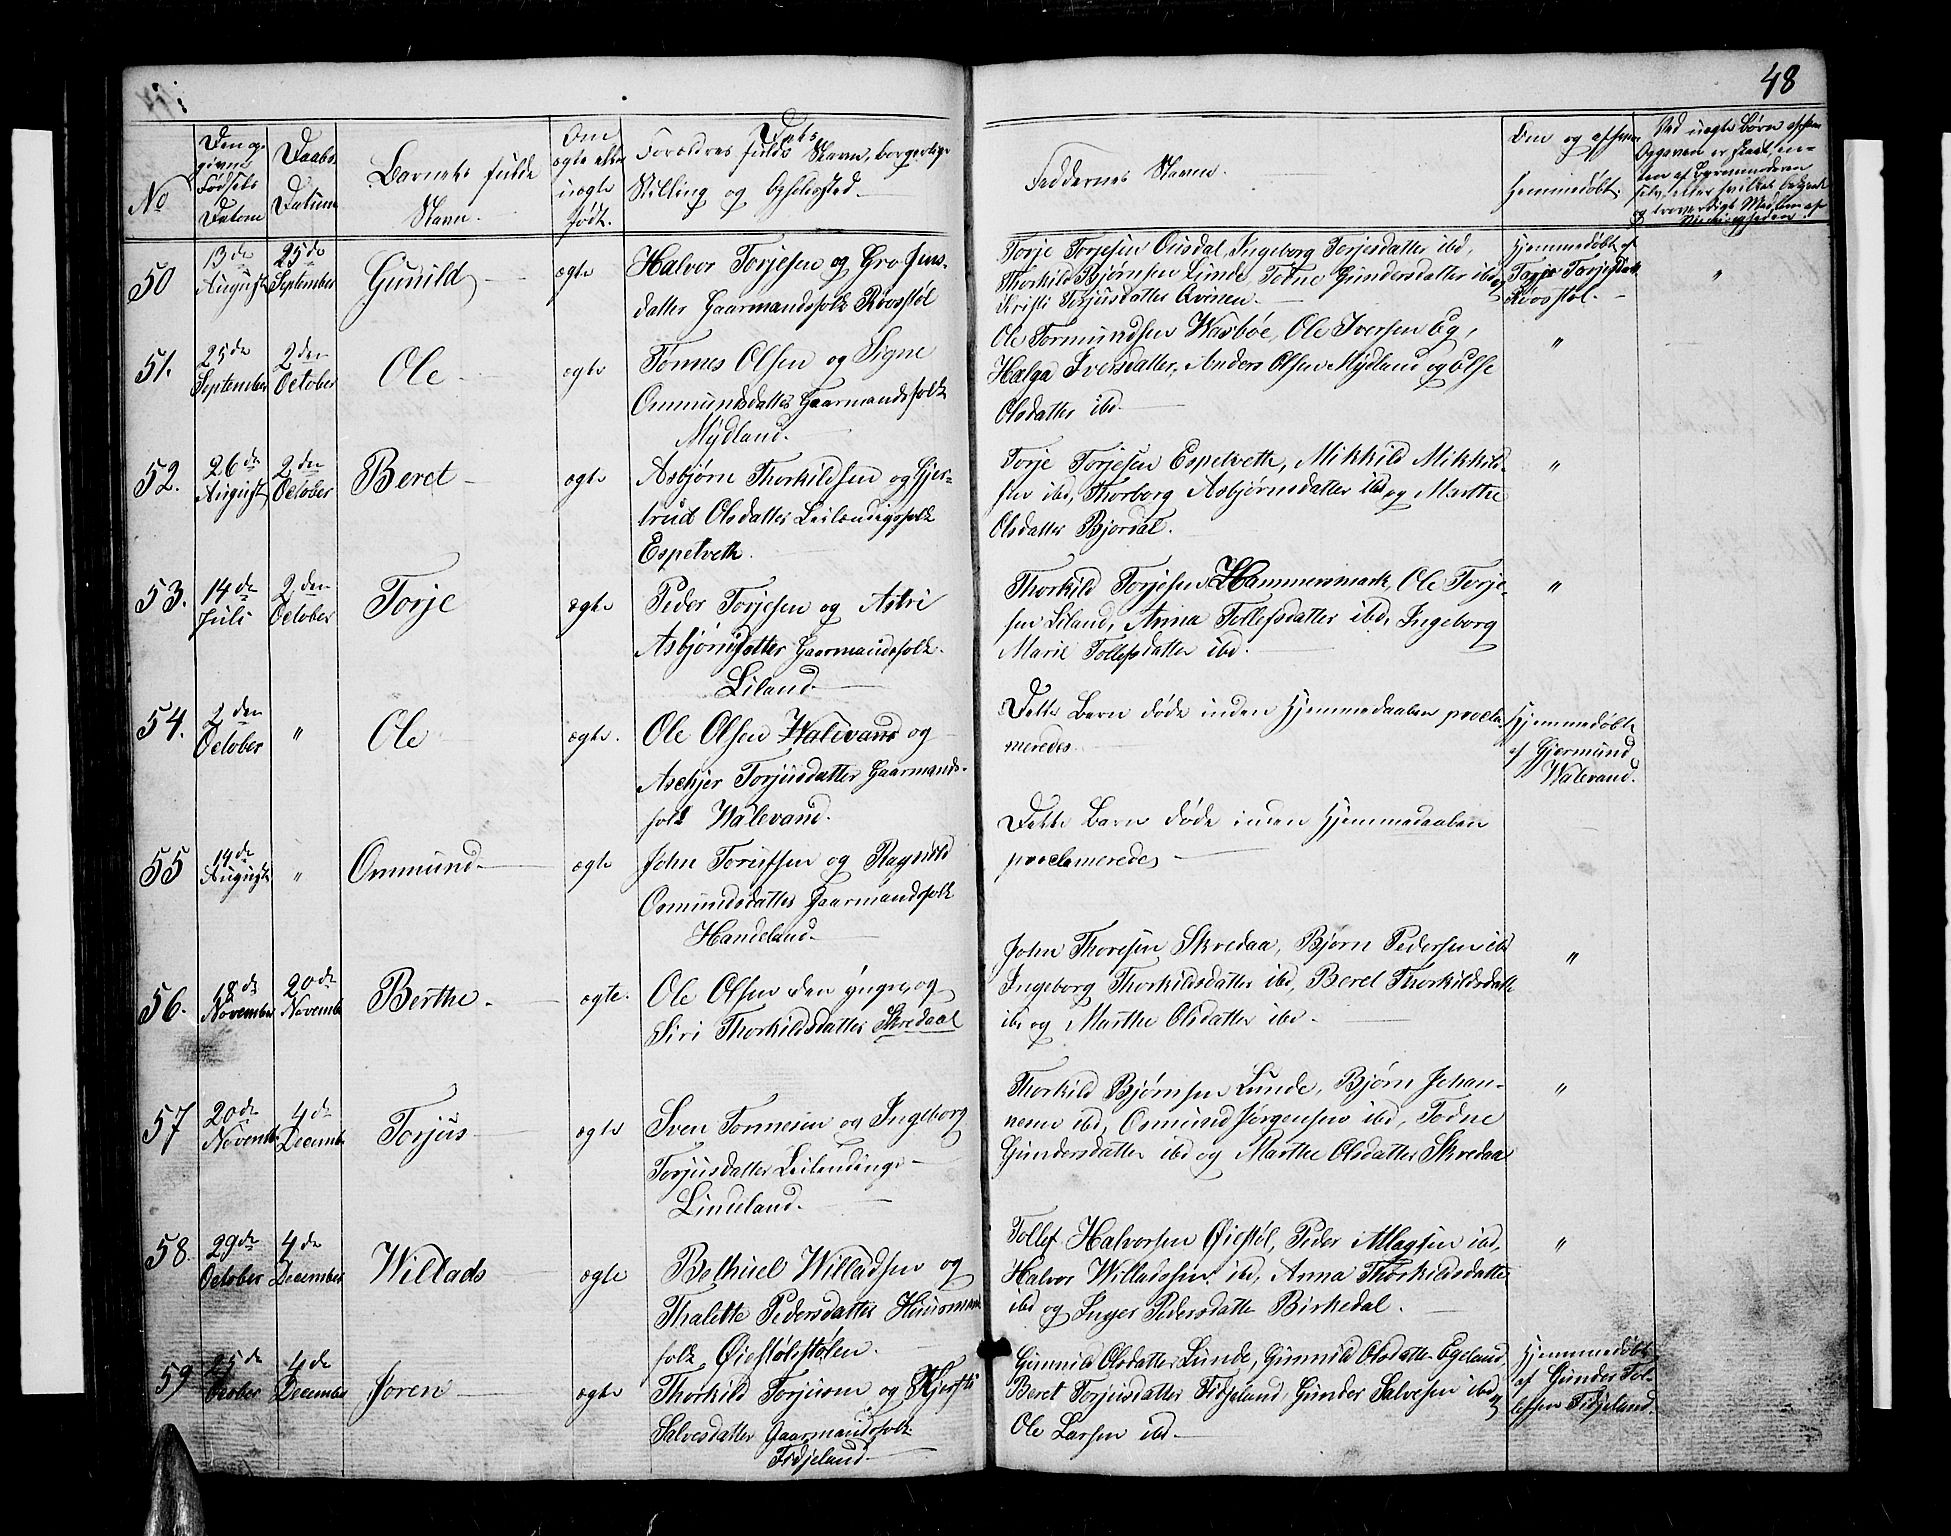 48
No
Den angivne Fødsels Datum
Daabs Datum
Barnets fulde Navn.
Om ægte eller uægte født.
Forældres fulde Navn, borgerlige Stilling og Opholdsted.
Faddernes Navne.
Hjemmedøbt.
50
13de August
25de September
Gunild
ægte
Halvor Torjesen og Gro Jens-
datter Gaarmandsfolk Røvsstøl
Torje Torjesen Ousdal, Ingeborg Torjesdatter ibd,
Thorkild Bjørnsen Linde, Todne Gundersdatter ibd og
Kristi Torjusdatter Qvinen.
Hjemmedøbt af
Torje Torjesen
Røvsstøl.
"
51.
25de September
2den October
Ole
ægte
Tønnes Olsen og Signe
Ommundsdatter Gaarmandsfolk
Mydland.
Ole Tormundsen Wasbøe, Ole Iversen Eg,
Halga Iversdatter, Anders Olsen Mydland og Else
Olsdatter ibd.
"
52.
26de August
2den October
Beret
ægte
Asbjørn Thorkildsen og Gjer-
trud Olsdatter Leilændingsfolk
Espetveth.
Torje Torjesen Espetveth, Mikkild Mikkild-
sen ibd, Thorborg Asbjørnsdatter ibd og Marthe
Olsdatter Bjordal.
"
53.
14de Juli
2den October
Torje
ægte
Peder Torjesen og Astri
Asbjørnsdatter Gaarmandsfolk
Liland.
Thorkild Torjesen Hammersmark, Ole Torje-
sen Liland, Anna Tollefsdatter ibd, Ingeborg
Marie Tollefsdatter ibd.
"
54.
2den October
"
Ole
ægte.
Ole Olsen Walevand og
Aschjer Torjusdatter Gaarmands-
folk Walevand.
Dette Barn døde inden Hjemmedaaben procla-
meredes.
Hjemmedøbt
af Gjermund
Walevand.
55
14de August
"
Ommund
ægte
John Torufsen og Ragnild
Osmundsdatter Gaarmandsfolk
Handeland.
Dette Barn døde inden Hjemmedaaben
proclameredes
56.
18de November
20de November
Berthe
ægte.
Ole Olsen den yngre, og
Siri Thorkildsdatter Skredaal
John Thoresen Skredaa, Bjørn Pedersen ibd
Ingeborg Thorkildsdatter ibd, Beret Thorkildsdatt
ibd og Marthe Olsdatter ibd.
"
57
20de Novemb
4de Decembe
Torjus
ægte
Sven Tonnesen og Ingeborg
Torjusdatter Leilendings
Lindeland.
Thorkild Bjørnsen Linde, Bjørn Johan-
nesen ibd, Osmund Jørgensen ibd, Todne
Gundersdatter ibd og Marthe Olsdatter Skredaa
"
58.
29de October
4de December
Willads
ægte
Bethuel Willadsen og
Thalette Pedersdatter Huusmands
folk Øiestølstølen.
Tollef Halvorsen Øiestøl, Peder Allagsen ibd,
Halvor Willadssen ibd, Anna Thorkildsdatte
ibd og Inger Pedersdatter Birkedal.
"
59
October
4de December
Joren
ægte
Thorkild Torjusen og Kjersti
Salvesdatter Gaarmandsfolk
Fidjeland
Gunnild Olsdatter Linde, Gunnild Olsdatter Egeland,
Beret Torjusdatter Fidjeland Gunder Salvesen ibd og
Ole Larsen ibd.
Hjemmedøbt
af Gunder Tol-
lefsen Fidjeland.